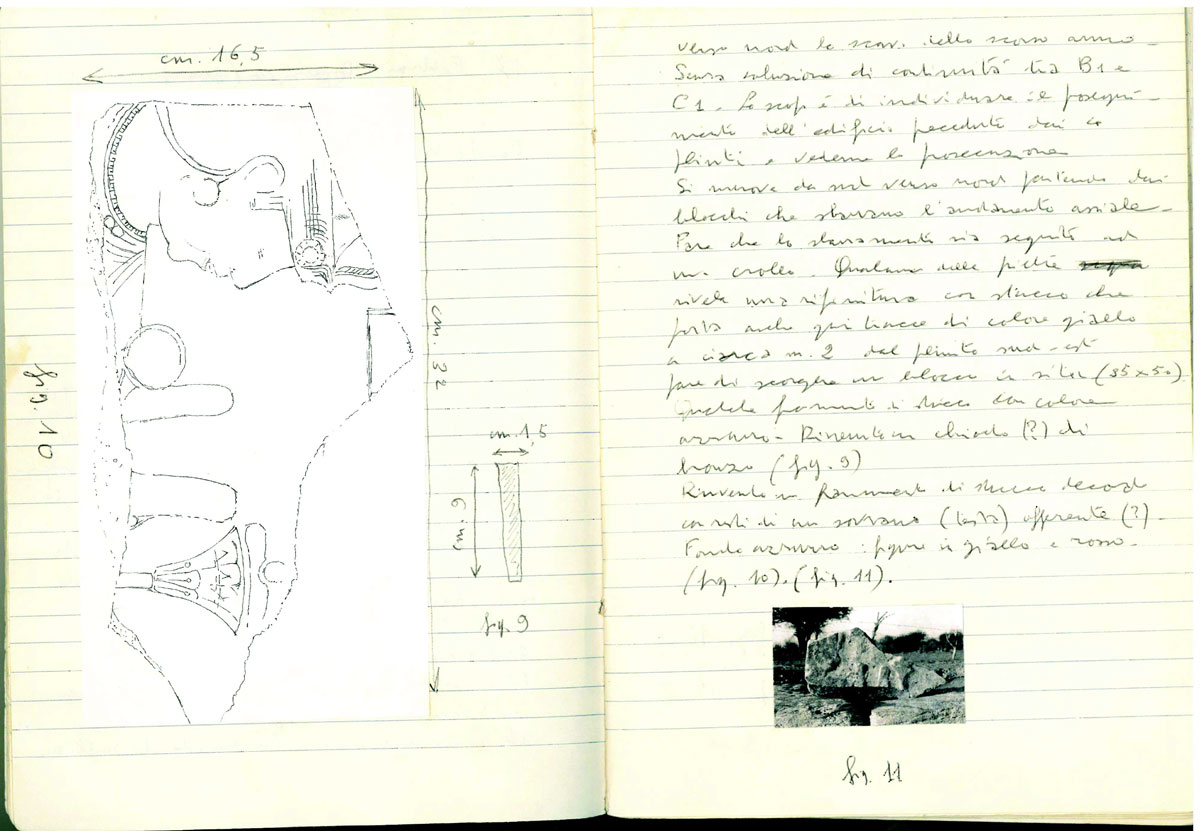 cm. 16,5
cm. 32
fig. 10
cm. 1,5
6 cm.
fig. 9
verso nord lo scavo dello scorso anno -
Senza soluzione di continuità tra B1 e
C1. Lo scopo è di individuare il prosegui-
mento dell'edificio preceduto dai
plinti e vederne la prosecuzione
Si muove da sud verso nord partendo dai
blocchi che
Pare che lo sia seguito ad
un crollo. Qualcuna delle pietre
rivela una rifinitura con stucco che
porta anche qui tracce di colore giallo
a circa m. 2 dal plinto sud-est
pare di scorgere un blocco in situ (35 x 50)
Qualche frammento di stucco con colore
azzurro - Rinvenuto un chiodo (?) di
bronzo (fig. 9)
Rinvenuto un frammento di stucco decorato
con resti di un sovrano (testa) offerente (?) -
Fondo azzurro : figure in giallo e rosso -
(fig. 10). (fig. 11).
fig. 11